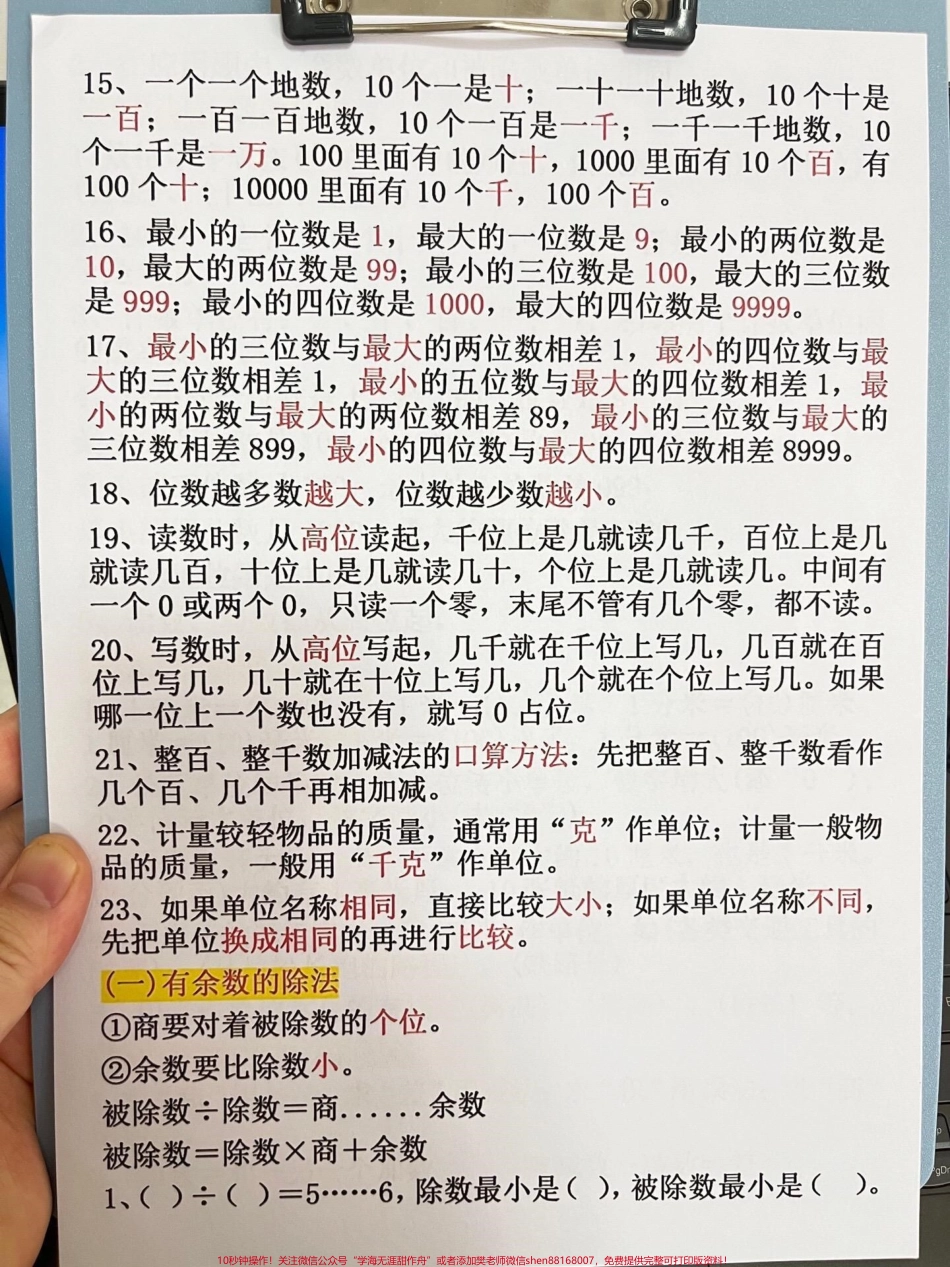 15、一个一个地数，10 个一是十；一十一十地数，10 个十是
一百；一百一百地数，10 个一百是一千；一千一千地数，10
个一千是一万。100 里面有 10 个十，1000 里面有 10 个百，有
100 个十；10000 里面有 10 个千，100 个百。
16、最小的一位数是 1，最大的一位数是 9；最小的两位数是
10，最大的两位数是 99；最小的三位数是 100，最大的三位数
是 999；最小的四位数是 1000，最大的四位数是 9999。
17、最小的三位数与最大的两位数相差 1，最小的四位数与最
大的三位数相差 1，最小的五位数与最大的四位数相差 1，最
小的两位数与最大的两位数相差 89，最小的三位数与最大的
三位数相差 899，最小的四位数与最大的四位数相差 8999。
18、位数越多数越大，位数越少数越小。
19、读数时，从高位读起，千位上是几就读几千，百位上是几
就读几百，十位上是几就读几十，个位上是几就读几。中间有
一个 0 或两个 0，只读一个零，末尾不管有几个零，都不读。
20、写数时，从高位写起，几千就在千位上写几，几百就在百
位上写几，几十就在十位上写几，几个就在个位上写几。如果
哪一位上一个数也没有，就写 0 占位。
21、整百、整千数加减法的口算方法：先把整百、整千数看作
几个百、几个千再相加减。
22、计量较轻物品的质量，通常用“克”作单位；计量一般物
品的质量，一般用“千克”作单位。
23、如果单位名称相同，直接比较大小；如果单位名称不同，
先把单位换成相同的再进行比较。
(一)有余数的除法
①商要对着被除数的个位。
②余数要比除数小。
被除数÷除数＝商......余数
被除数＝除数×商＋余数
1、（ ）÷（ ）＝5……6，除数最小是（ ），被除数最小是（ ）。
10秒钟操作！关注微信公众号“学海无涯甜作舟”或者添加樊老师微信shen88168007，免费提供完整可打印版资料！